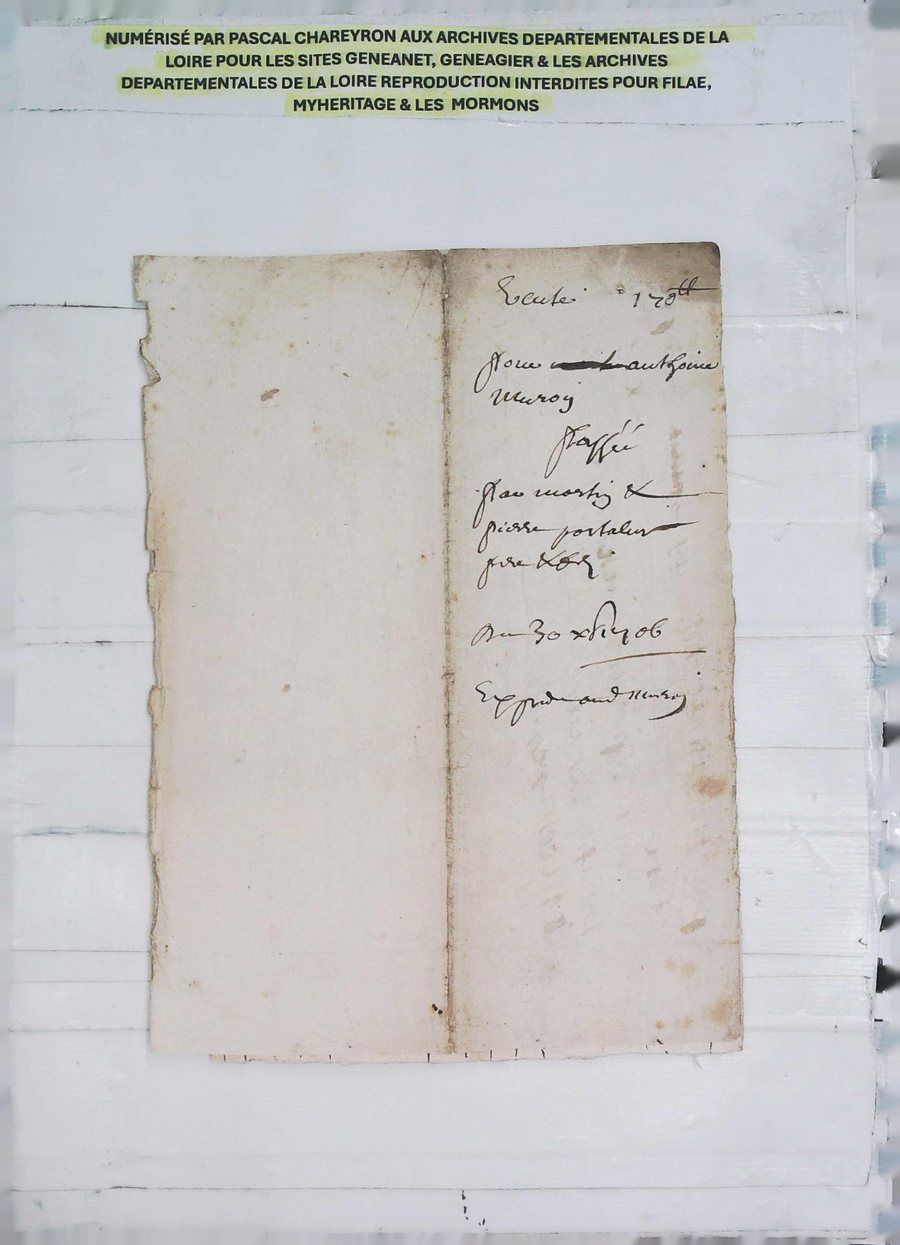 NUMÉRISÉ PAR PASCAL CHAREYRON AUX ARCHIVES DEPARTEMENTALES DE LA
LOIRE POUR LES SITES GENEANET, GENEAGIER & LES ARCHIVES
DEPARTEMENTALES DE LA LOIRE REPRODUCTION INTERDITES POUR FILAE,
MYHERITAGE & LES MORMONS
Vente 170tt
pour anthoine
muron
passée
par martin &
pierre portalier
pere &
Du 30 xbre